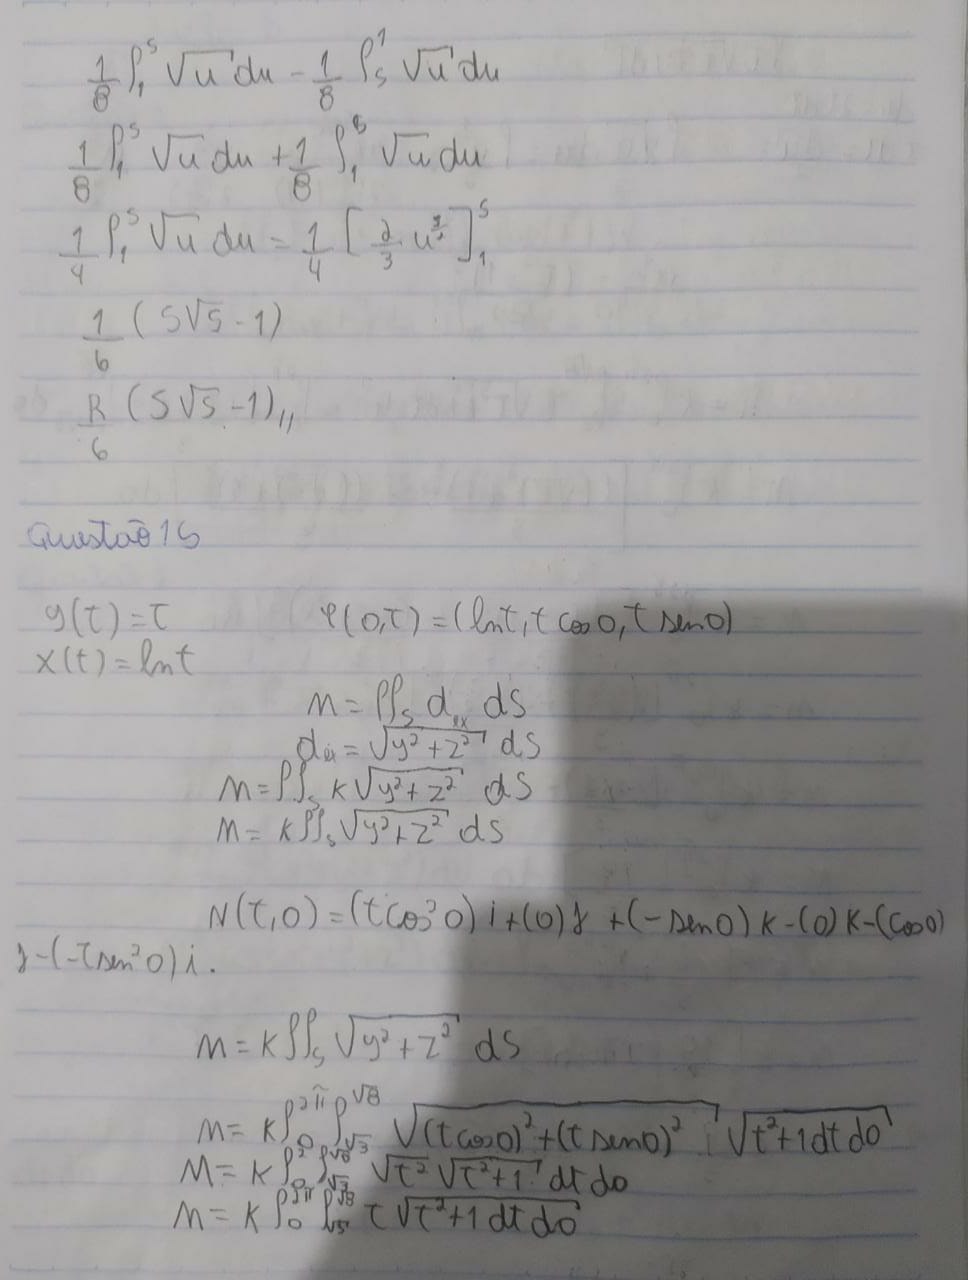 1/8 ∫₁⁵ √u du - 1/8 ∫₅¹ √u du
1/8 ∫₁⁵ √u du + 1/8 ∫₁⁵ √u du
1/4 ∫₁⁵ √u du = 1/4 [2/3 u^(3/2)]₁⁵
1/6 (5√5 - 1)
R/6 (5√5 - 1)//
Questão 15
y(t) = t φ(θ,t) = (lnt, t cosθ, t senθ)
x(t) = ln t
M = ∬ₛ dₑₓ dS
dₑₓ = √(y² + z²) dS
M = ∬ₛ K√(y² + z²) dS
M = K∬ₛ √(y² + z²) dS
N(t,θ) = (t cos²θ) i + (0) j + (-senθ) K - (0) K - (cosθ)
j - (-t sen²θ) i.
M = K∬ₛ √(y² + z²) dS
M = K∫₀^2π ∫√3^√8 √((t cosθ)² + (t senθ)²) √(t² + 1 dt dθ)
M = K∫₀^2 ∫√3^√8 √t² √(t² + 1) dt dθ
M = K∫₀^2π ∫√3^√8 t √(t² + 1 dt dθ)